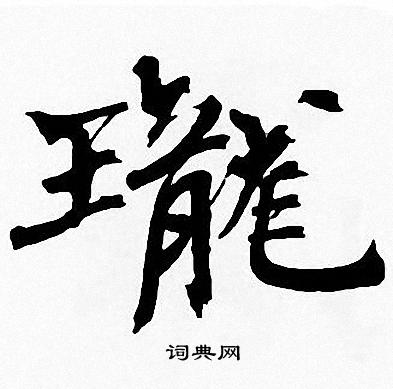 瓏
词典网